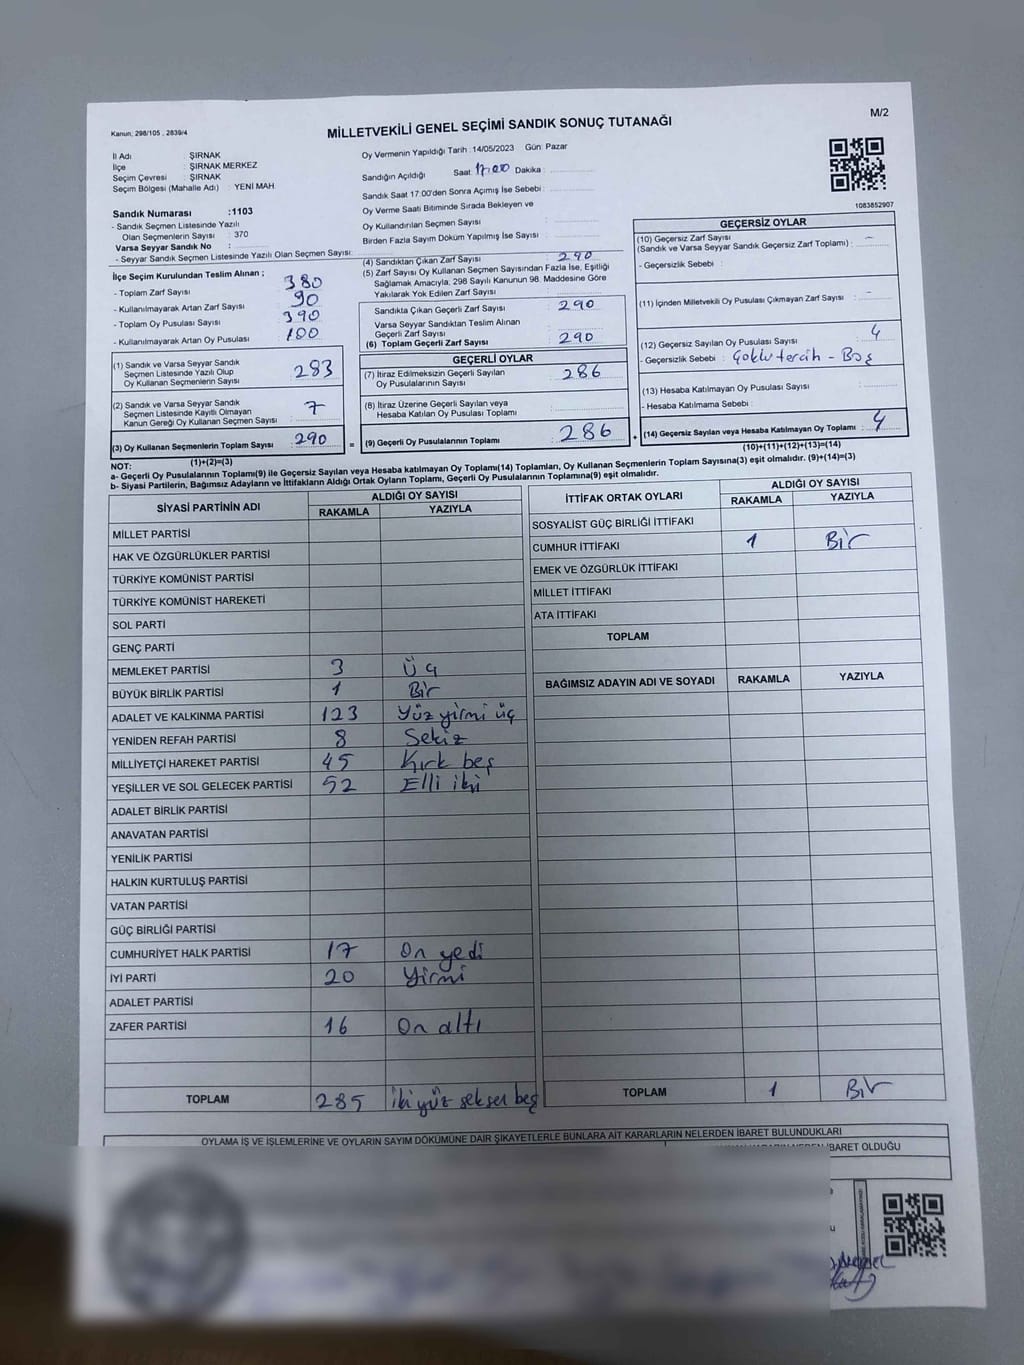 M/2
Kanun; 298/105 , 2839/4
MİLLETVEKİLİ GENEL SEÇİMİ SANDIK SONUÇ TUTANAĞI
İl Adı : ŞIRNAK
İlçe : ŞIRNAK MERKEZ
Seçim Çevresi : ŞIRNAK
Seçim Bölgesi (Mahalle Adı) : YENİ MAH.
Sandık Numarası :1103
- Sandık Seçmen Listesinde Yazılı
Olan Seçmenlerin Sayısı : 370
Varsa Seyyar Sandık No :
- Seyyar Sandık Seçmen Listesinde Yazılı Olan Seçmen Sayısı:
Oy Vermenin Yapıldığı Tarih : 14/05/2023 Gün: Pazar
Sandığın Açıldığı Saat: 17:00 Dakika :
Sandık Saat 17:00'den Sonra Açımış İse Sebebi :
Oy Verme Saati Bitiminde Sırada Bekleyen ve
Oy Kullandırılan Seçmen Sayısı :
Birden Fazla Sayım Döküm Yapılmış İse Sayısı :
1083852907
İlçe Seçim Kurulundan Teslim Alınan ;
- Toplam Zarf Sayısı : 380
- Kullanılmayarak Artan Zarf Sayısı : 90
- Toplam Oy Pusulası Sayısı : 390
- Kullanılmayarak Artan Oy Pusulası : 100
(1) Sandık ve Varsa Seyyar Sandık
Seçmen Listesinde Yazılı Olup
Oy Kullanan Seçmenlerin Sayısı : 283
(2) Sandık ve Varsa Seyyar Sandık
Seçmen Listesinde Kayıtlı Olmayan
Kanun Gereği Oy Kullanan Seçmen Sayısı : 7
(3) Oy Kullanan Seçmenlerin Toplam Sayısı : 290
(1)+(2)=(3)
(4) Sandıktan Çıkan Zarf Sayısı : 290
(5) Zarf Sayısı Oy Kullanan Seçmen Sayısından Fazla İse, Eşitliği
Sağlamak Amacıyla, 298 Sayılı Kanunun 98. Maddesine Göre
Yakılarak Yok Edilen Zarf Sayısı :
Sandıkta Çıkan Geçerli Zarf Sayısı : 290
Varsa Seyyar Sandıktan Teslim Alınan
Geçerli Zarf Sayısı :
(6) Toplam Geçerli Zarf Sayısı : 290
GEÇERLİ OYLAR
(7) İtiraz Edilmeksizin Geçerli Sayılan
Oy Pusulalarının Sayısı : 286
(8) İtiraz Üzerine Geçerli Sayılan veya
Hesaba Katılan Oy Pusulası Toplamı :
= (9) Geçerli Oy Pusulalarının Toplamı : 286 +
GEÇERSİZ OYLAR
(10) Geçersiz Zarf Sayısı
(Sandık ve Varsa Seyyar Sandık Geçersiz Zarf Toplamı) : -
- Geçersizlik Sebebi :
(11) İçinden Milletvekili Oy Pusulası Çıkmayan Zarf Sayısı : -
(12) Geçersiz Sayılan Oy Pusulası Sayısı : 4
- Geçersizlik Sebebi : Çoklu tercih - Boş
(13) Hesaba Katılmayan Oy Pusulası Sayısı :
- Hesaba Katılmama Sebebi :
(14) Geçersiz Sayılan veya Hesaba Katılmayan Oy Toplamı : 4
(10)+(11)+(12)+(13)=(14)
NOT:
a- Geçerli Oy Pusulalarının Toplamı(9) ile Geçersiz Sayılan veya Hesaba katılmayan Oy Toplamı(14) Toplamları, Oy Kullanan Seçmenlerin Toplam Sayısına(3) eşit olmalıdır. (9)+(14)=(3)
b- Siyasi Partilerin, Bağımsız Adayların ve İttifakların Aldığı Ortak Oyların Toplamı, Geçerli Oy Pusulalarının Toplamına(9) eşit olmalıdır.
SİYASİ PARTİNİN ADI ALDIĞI OY SAYISI
RAKAMLA YAZIYLA
MİLLET PARTİSİ
HAK VE ÖZGÜRLÜKLER PARTİSİ
TÜRKİYE KOMÜNİST PARTİSİ
TÜRKİYE KOMÜNİST HAREKETİ
SOL PARTİ
GENÇ PARTİ
MEMLEKET PARTİSİ 3 Üç
BÜYÜK BİRLİK PARTİSİ 1 Bir
ADALET VE KALKINMA PARTİSİ 123 Yüz yirmi üç
YENİDEN REFAH PARTİSİ 8 Sekiz
MİLLİYETÇİ HAREKET PARTİSİ 45 Kırk beş
YEŞİLLER VE SOL GELECEK PARTİSİ 52 Elli iki
ADALET BİRLİK PARTİSİ
ANAVATAN PARTİSİ
YENİLİK PARTİSİ
HALKIN KURTULUŞ PARTİSİ
VATAN PARTİSİ
GÜÇ BİRLİĞİ PARTİSİ
CUMHURİYET HALK PARTİSİ 17 On yedi
İYİ PARTİ 20 Yirmi
ADALET PARTİSİ
ZAFER PARTİSİ 16 On altı
TOPLAM 285 İki yüz seksen beş
İTTİFAK ORTAK OYLARI ALDIĞI OY SAYISI
RAKAMLA YAZIYLA
SOSYALİST GÜÇ BİRLİĞİ İTTİFAKI
CUMHUR İTTİFAKI 1 Bir
EMEK VE ÖZGÜRLÜK İTTİFAKI
MİLLET İTTİFAKI
ATA İTTİFAKI
TOPLAM
BAĞIMSIZ ADAYIN ADI VE SOYADI RAKAMLA YAZIYLA
TOPLAM 1 Bir
OYLAMA İŞ VE İŞLEMLERİNE VE OYLARIN SAYIM DÖKÜMÜNE DAİR ŞİKAYETLERLE BUNLARA AİT KARARLARIN NELERDEN İBARET BULUNDUKLARI
İBARET OLDUĞU